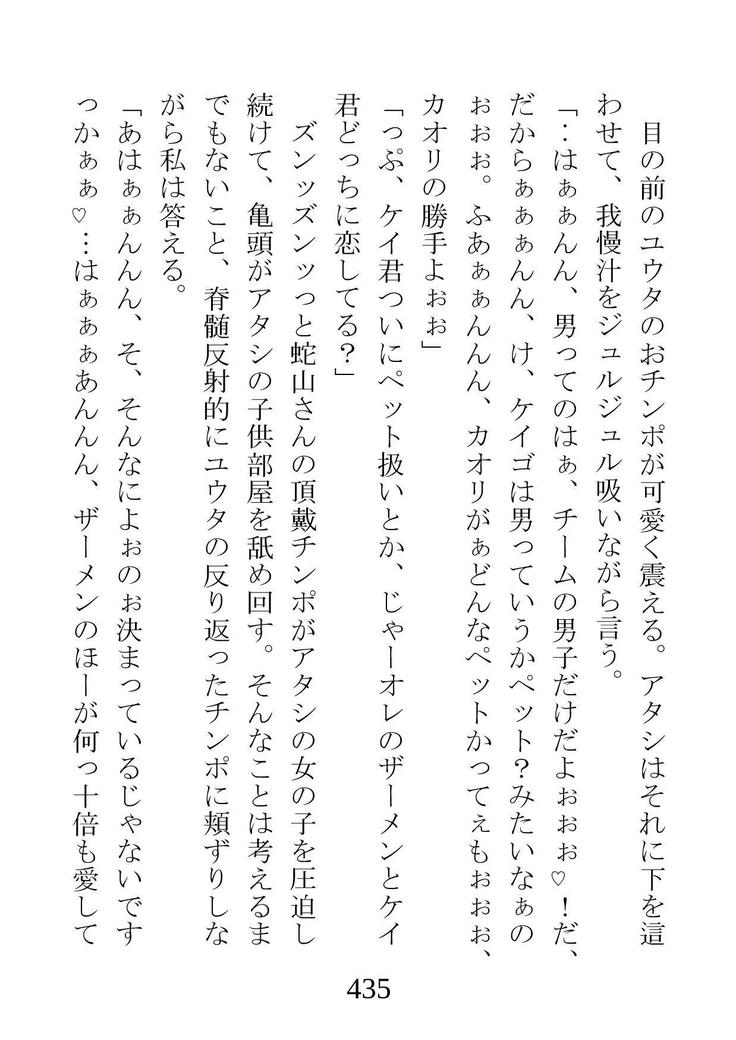 目の前のユウタのおチンポが可愛く震える。アタシはそれに下を這
わせて、我慢汁をジュルジュル吸いながら言う。
「‥はぁぁんん、男ってのはぁ、チームの男子だけだよぉぉぉ♡！だ、
だからぁぁぁんん、け、ケイゴは男っていうかペット？みたいなぁの
ぉぉぉ。ふあぁぁんんん、カオリがぁどんなペットかってぇもぉぉぉ、
カオリの勝手よぉぉ」
「っぷ、ケイ君ついにペット扱いとか、じゃーオレのザーメンとケイ
君どっちに恋してる？」
ズンッズンッっと蛇山さんの頂戴チンポがアタシの女の子を圧迫し
続けて、亀頭がアタシの子供部屋を舐め回す。そんなことは考えるま
でもないこと、脊髄反射的にユウタの反り返ったチンポに頬ずりしな
がら私は答える。
「あはぁぁんんん、そ、そんなによぉのぉ決まっているじゃないです
っかぁぁ♡…はぁぁぁあんんん、ザーメンのほーが何っ十倍も愛して
435